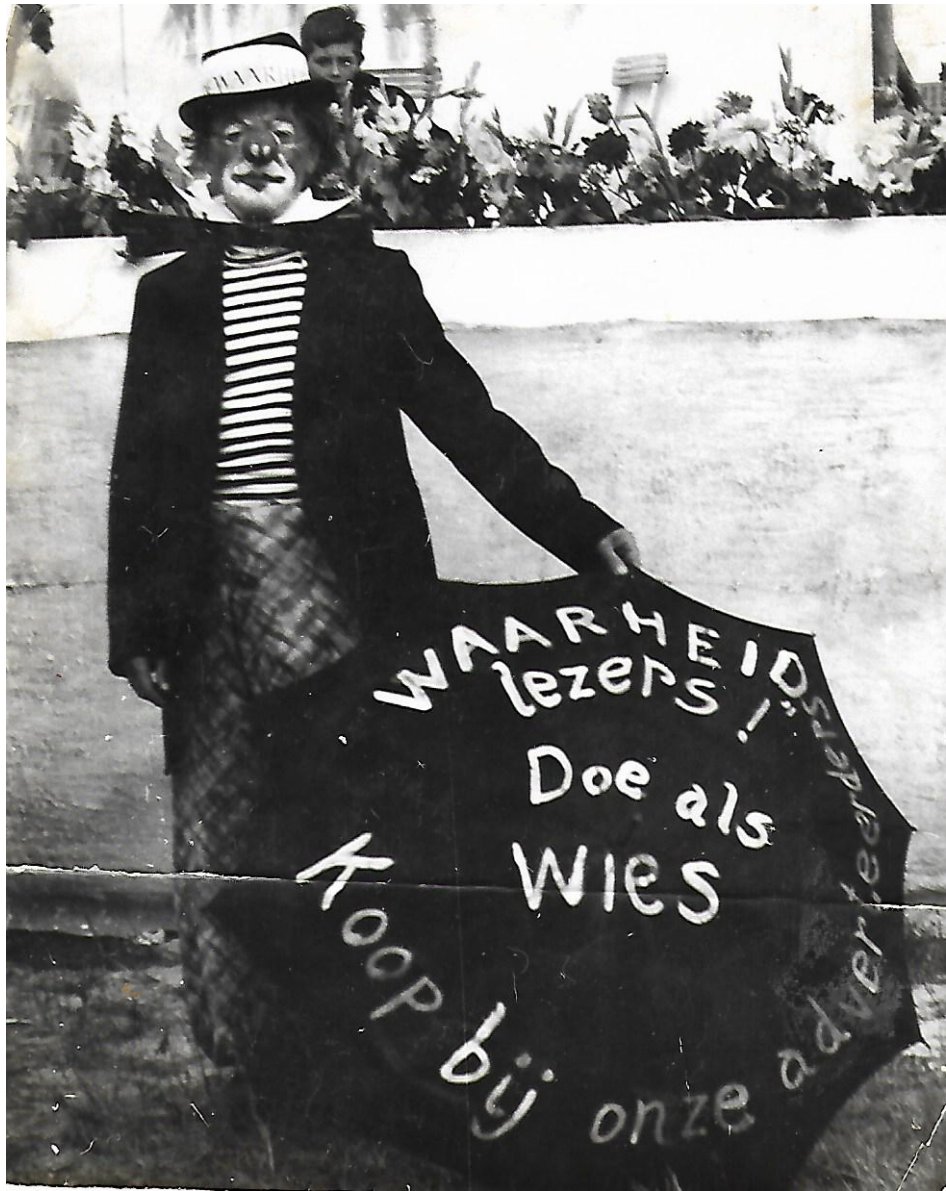 WAARHEID
WAARHEID
lezers!
Doe als
Wies
Koop bij onze adverteerders